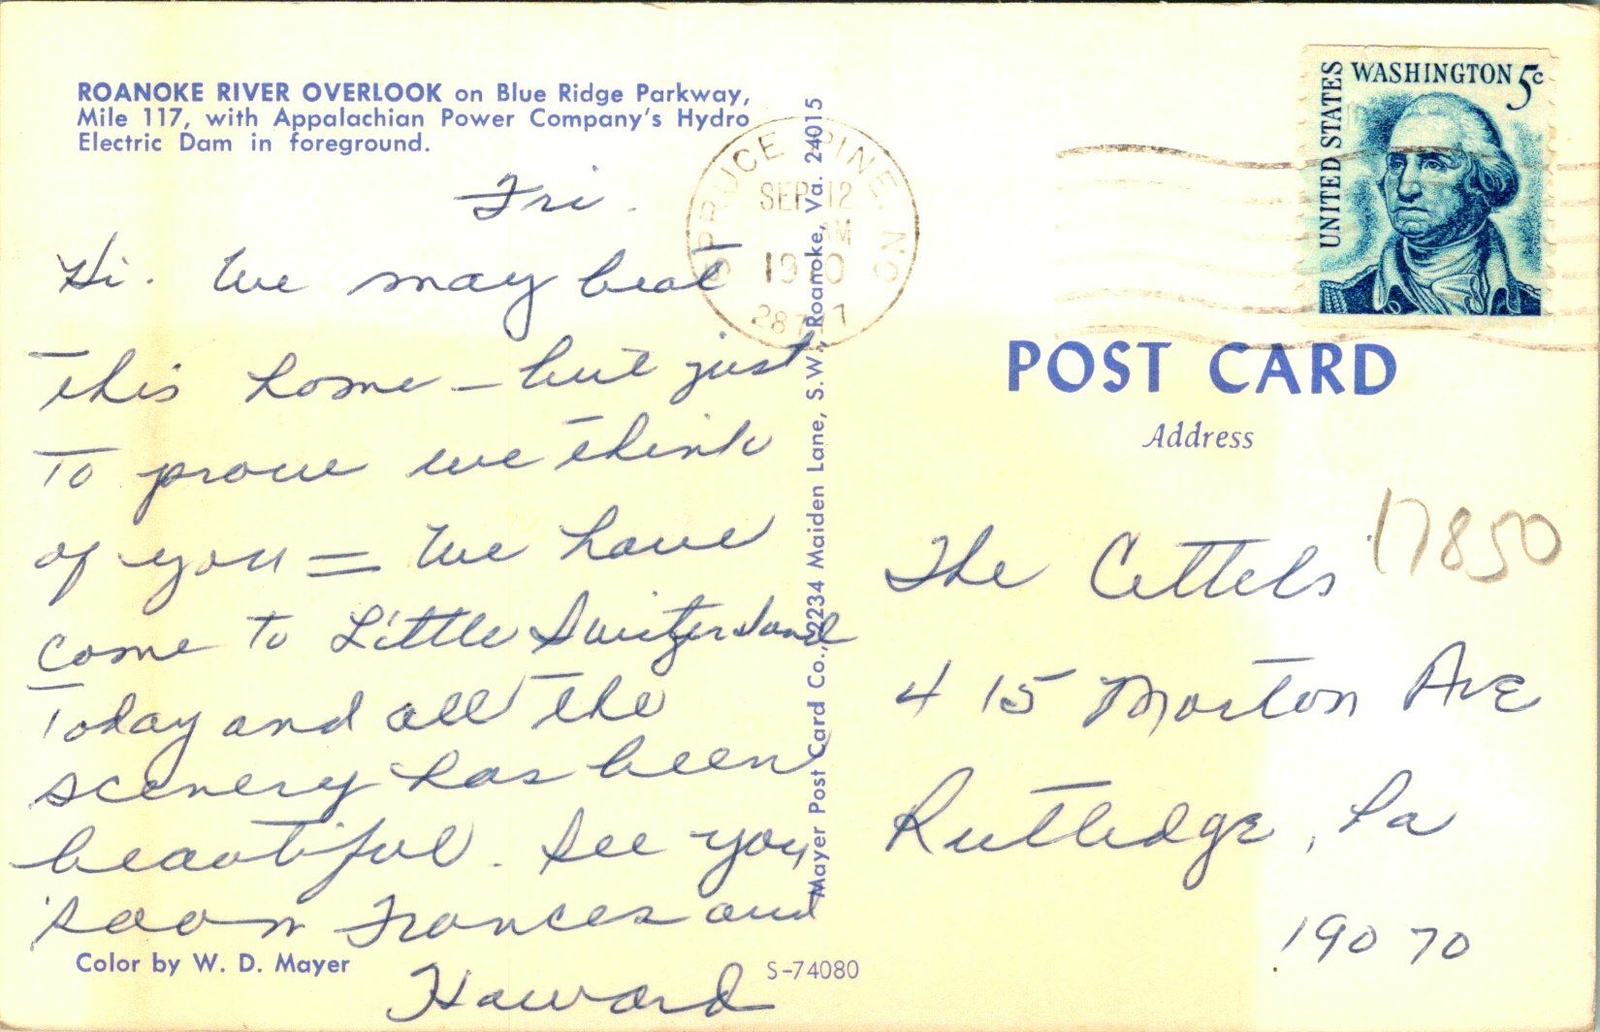 ROANOKE RIVER OVERLOOK on Blue Ridge Parkway,
Mile 117, with Appalachian Power Company's Hydro
Electric Dam in foreground.
Fri.
Hi. We may beat
this home – but just
to prove we think
of you = We have
come to Little Switzerland
today and all the
scenery has been
beautiful. See you
soon Frances and
Howard
Color by W. D. Mayer
S-74080
Mayer Post Card Co., 2234 Maiden Lane, S.W., Roanoke, Va. 24015
SPRUCE PINE, NC
SEP 12
AM
19 0
287 7
UNITED STATES
WASHINGTON 5c
POST CARD
Address
17850
The
415 Morton Ave
Rutledge, Pa
19070